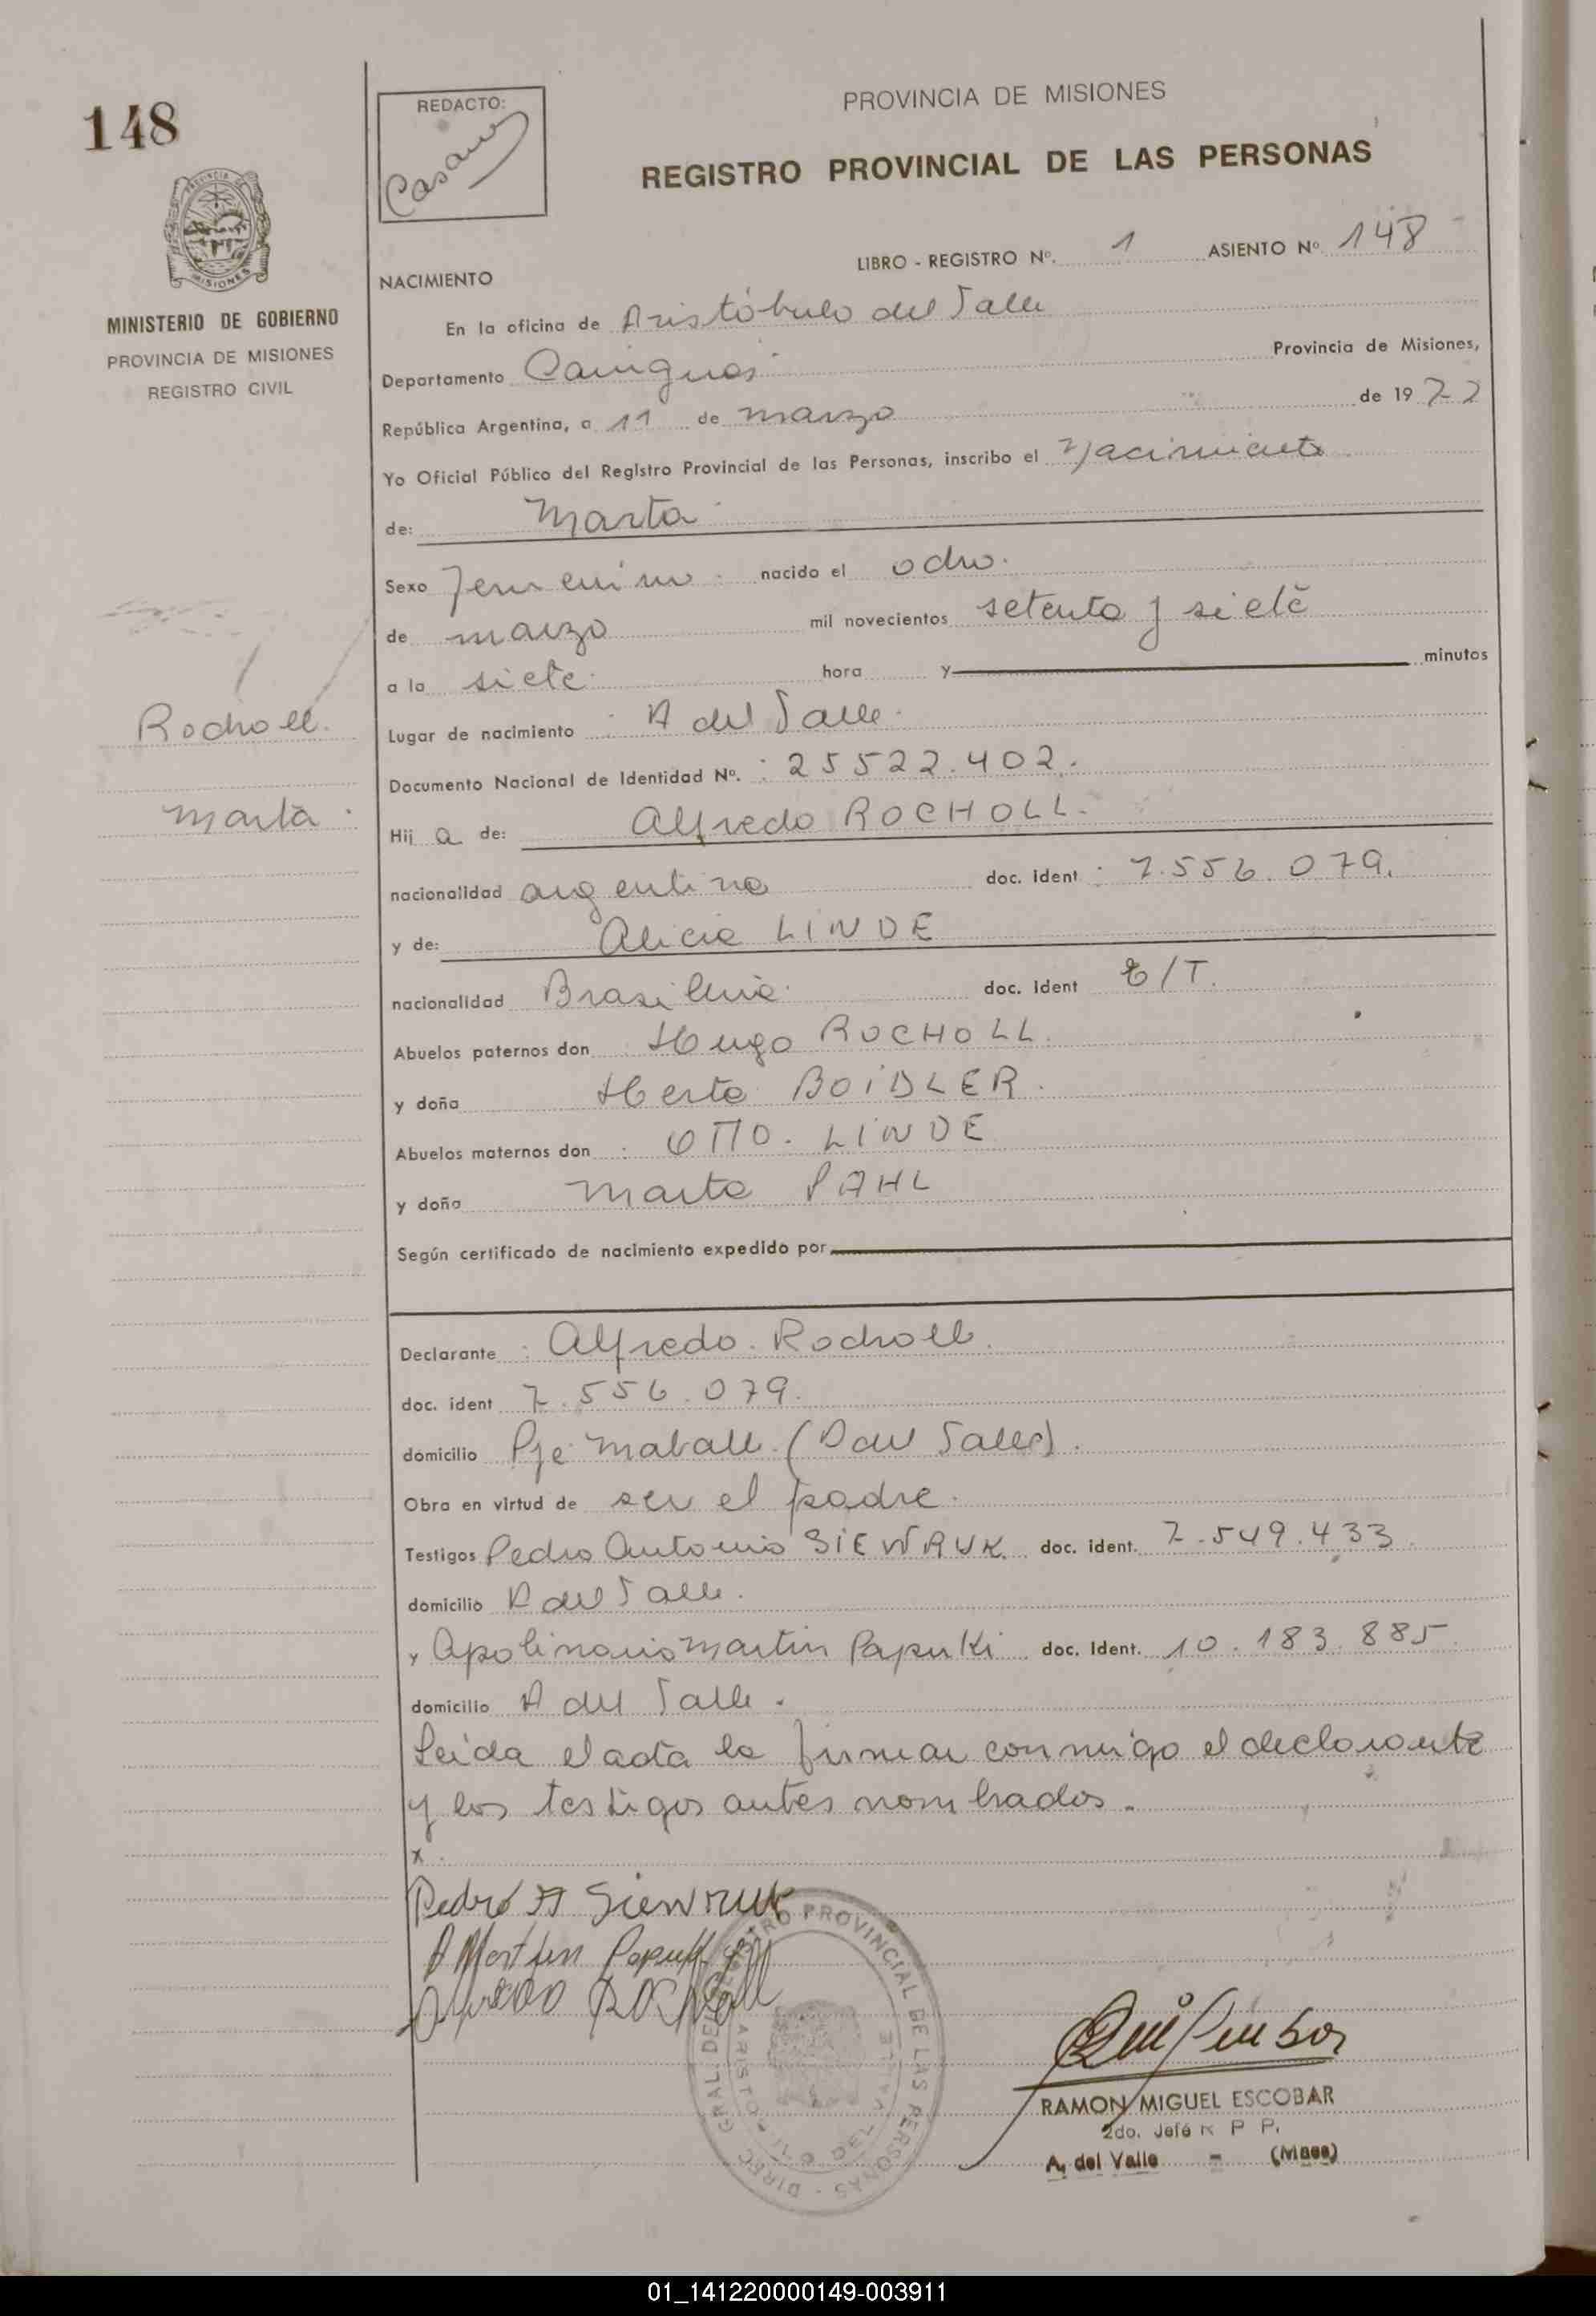 148
REDACTO:
Casano
PROVINCIA DE MISIONES
REGISTRO PROVINCIAL DE LAS PERSONAS
PROVINCIA DE
MISIONES
MINISTERIO DE GOBIERNO
PROVINCIA DE MISIONES
REGISTRO CIVIL
LIBRO - REGISTRO Nº. 1 ASIENTO Nº 148
NACIMIENTO
En la oficina de Aristóbulo del Valle
Departamento Cainguas Provincia de Misiones,
República Argentina, a 11 de marzo de 1977
Yo Oficial Público del Registro Provincial de las Personas, inscribo el Nacimiento
de: Marta
Sexo Femenino nacido el ocho
de marzo mil novecientos setenta y siete
a la siete hora y minutos
Rocholl.
Marta
Lugar de nacimiento : A del Valle
Documento Nacional de Identidad Nº. : 25522.402.
Hij a de: Alfredo ROCHOLL.
nacionalidad argentina doc. ident : 7.556.079.
y de: Alicia LINDE
nacionalidad Brasileña doc. ident E/T.
Abuelos paternos don Hugo ROCHOLL.
y doña Herta BOIDLER.
Abuelos maternos don : OTTO. LINDE
y doña Marta PAHL
Según certificado de nacimiento expedido por
Declarante : Alfredo Rocholl.
doc. ident 7.556.079.
domicilio Pje (A del Valle).
Obra en virtud de ser el padre.
Testigos Pedro Antonio SIEWRUK doc. ident. 7.549.433.
domicilio A del Valle.
y Apolinario Martin Papuki doc. Ident. 10.183.885
domicilio A del Valle.
Leida el acta la firman conmigo el declarante
y los testigos antes nombrados.
x.
Pedro A Siewruk
A Martin
Alfredo Rocholl
DIREC. GRAL. DEL REGISTRO PROVINCIAL DE LAS PERSONAS
ARISTOBULO DEL VALLE
RAMON MIGUEL ESCOBAR
2do. Jefe R P P.
A. del Valle - (Mnes)
01_141220000149-003911